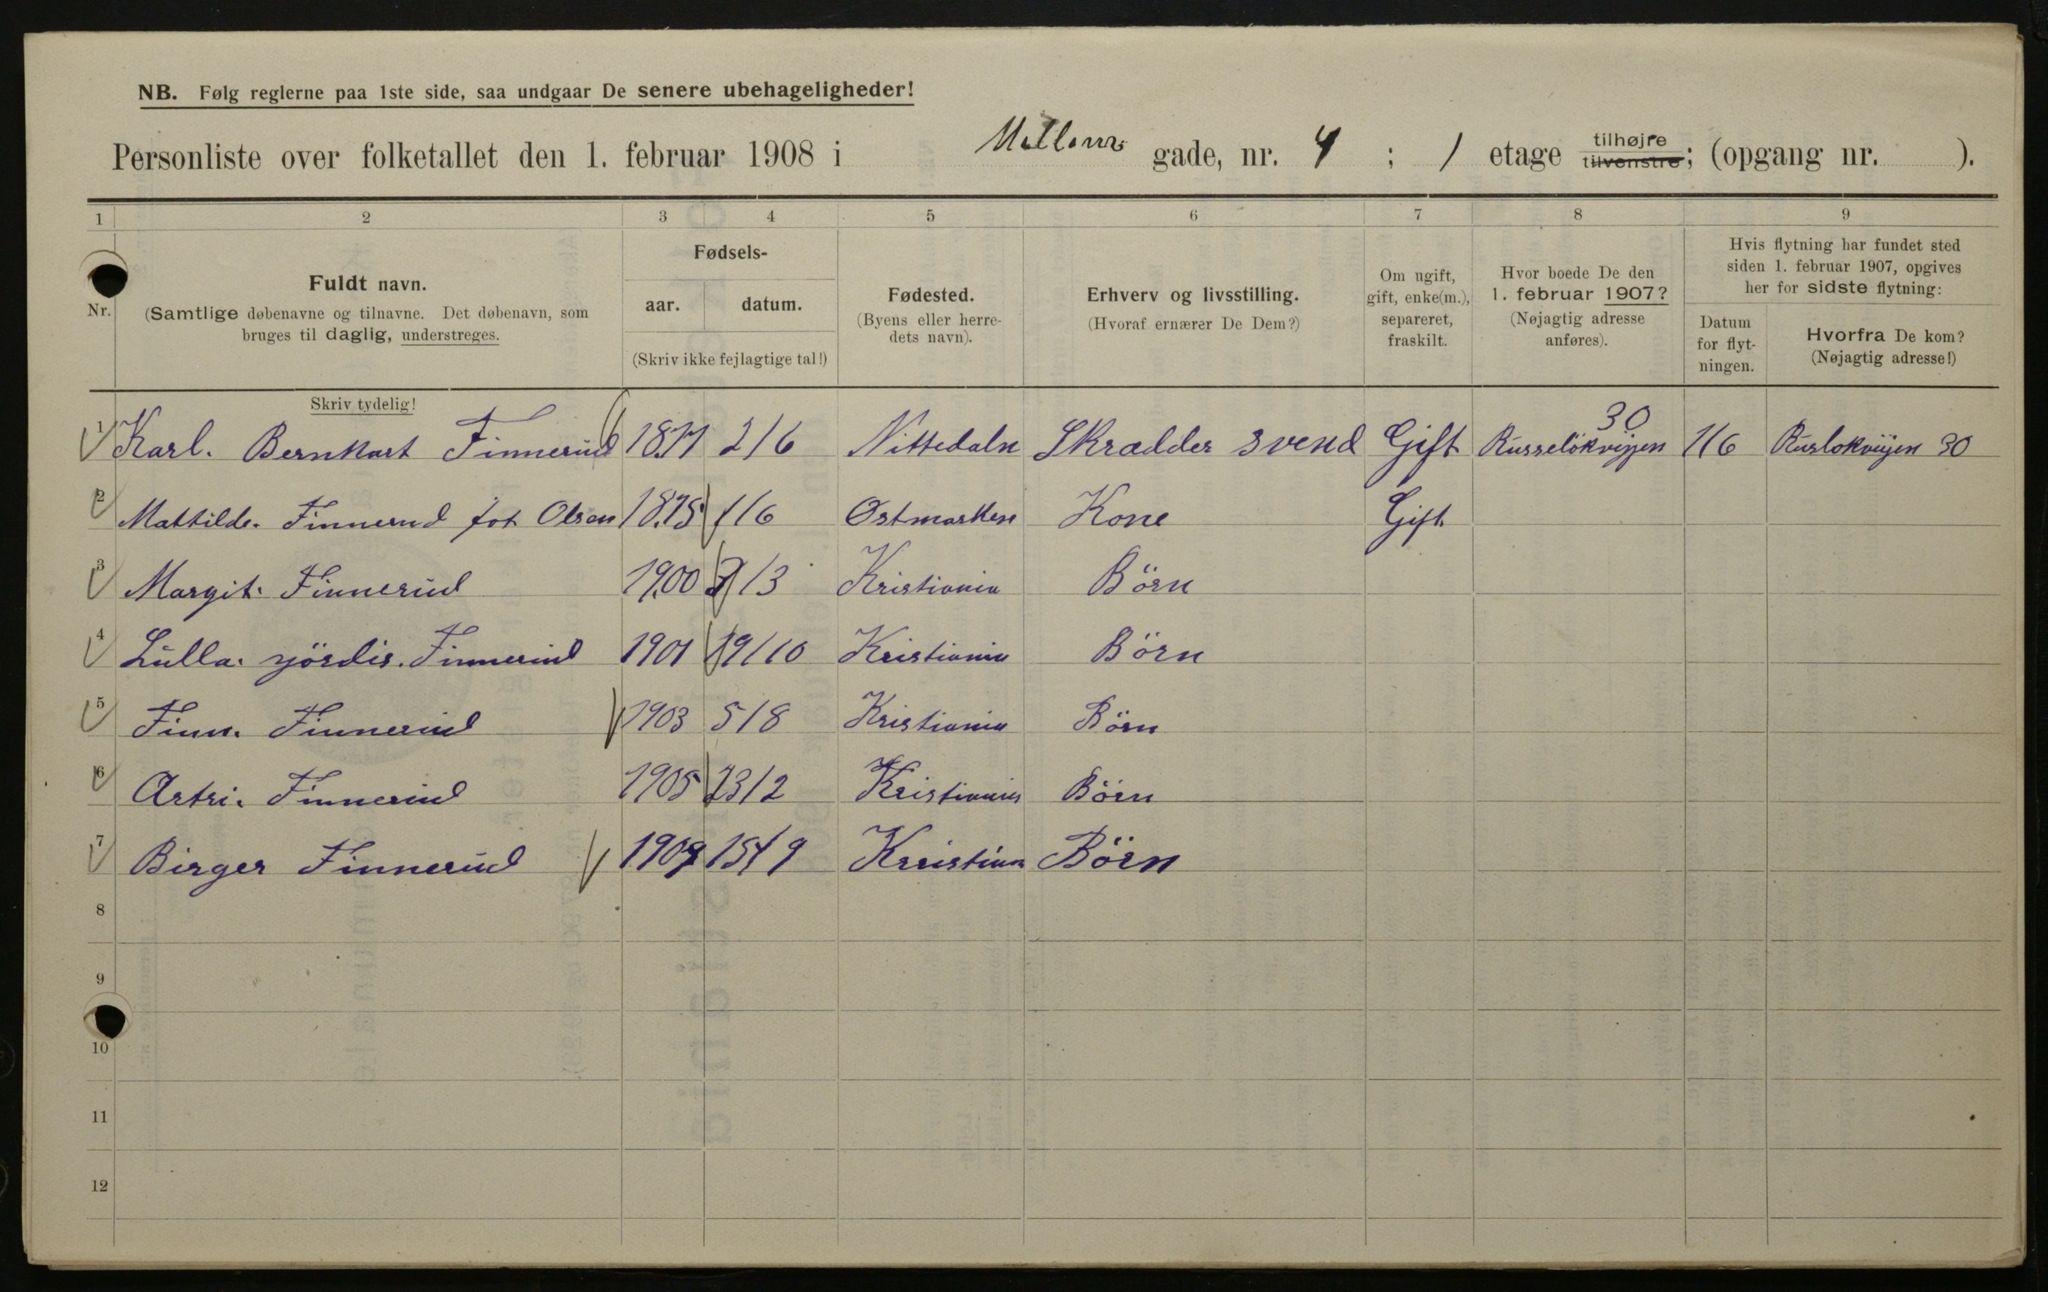 NB. Følg reglerne paa 1ste side, saa undgaar De senere ubehageligheder!
Personliste over folketallet den 1. februar 1908 i Mellem gade, nr. 4 ; 1 etage tilhøjre tilvenstre; (opgang nr. ).
1 2 3 4 5 6 7 8 9
Nr.
Fuldt navn.
(Samtlige døbenavne og tilnavne. Det døbenavn, som
bruges til daglig, understreges.
Skriv tydelig!
Fødsels-
aar. datum.
(Skriv ikke fejlagtige tal!)
Fødested.
(Byens eller herre-
dets navn).
Erhverv og livsstilling.
(Hvoraf ernærer De Dem?)
Om ugift,
gift, enke(m.),
separeret,
fraskilt.
Hvor boede De den
1. februar 1907?
(Nøjagtig adresse
anføres).
Hvis flytning har fundet sted
siden 1. februar 1907, opgives
her for sidste flytning:
Datum
for flyt-
ningen.
Hvorfra De kom?
(Nøjagtig adresse!)
1 Karl. Bernhart Finnerud 1871 2/6 Nittedaln Skrædder svend Gift Russeløkvijen 30 1/6 Ruslokviijen 30
2 Mattilde. Finnerud föt Olsen 1875 1/6 Østmarken Kone Gift
3 Margit. Finnerud 1900 /3 Kristiania Börn
4 Lulla. yördis. Finnerud 1901 19/10 Kristiania Börn
5 Finn. Finnerud 1903 5/8 Kristiania Börn
6 Artri. Finnerud 1905 23/2 Kristiania Börn
7 Birger Finnerud 1907 15/9 Kristian Börn
8
9
10
11
12